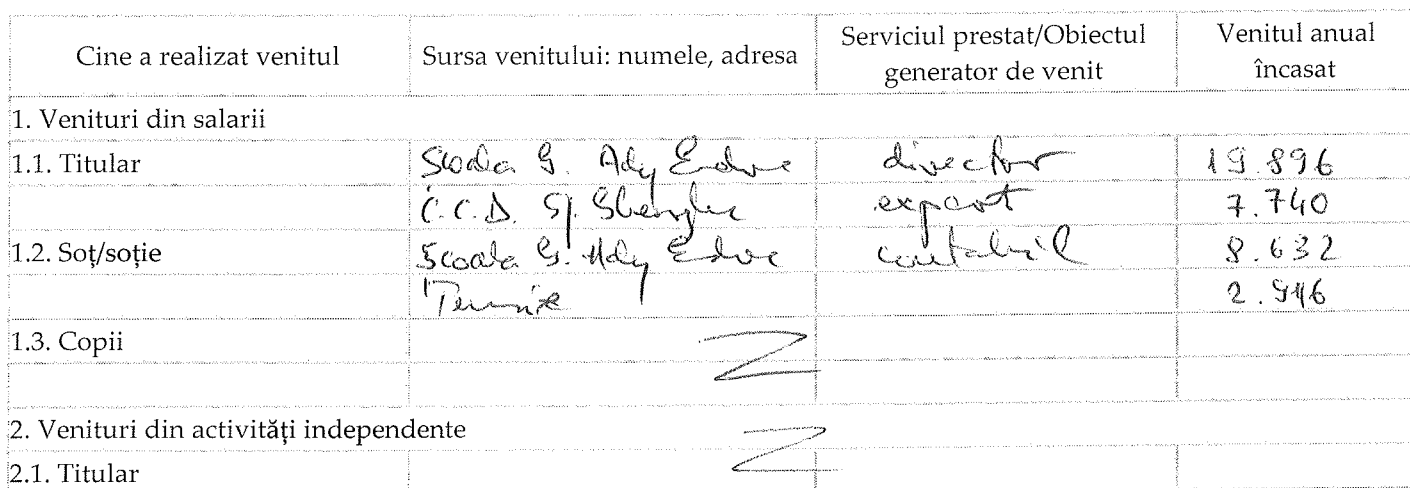 Cine a realizat venitul Sursa venitului: numele, adresa Serviciul prestat/Obiectul generator de venit Venitul anual încasat
1. Venituri din salarii
1.1. Titular Scoala G. Ady Endre director 19.896
C.C.D. Sf. Gheorghe expert 7.740
1.2. Soț/soție Scoala G. Ady Endre contabil 8.632
2.946
1.3. Copii
2. Venituri din activități independente
2.1. Titular